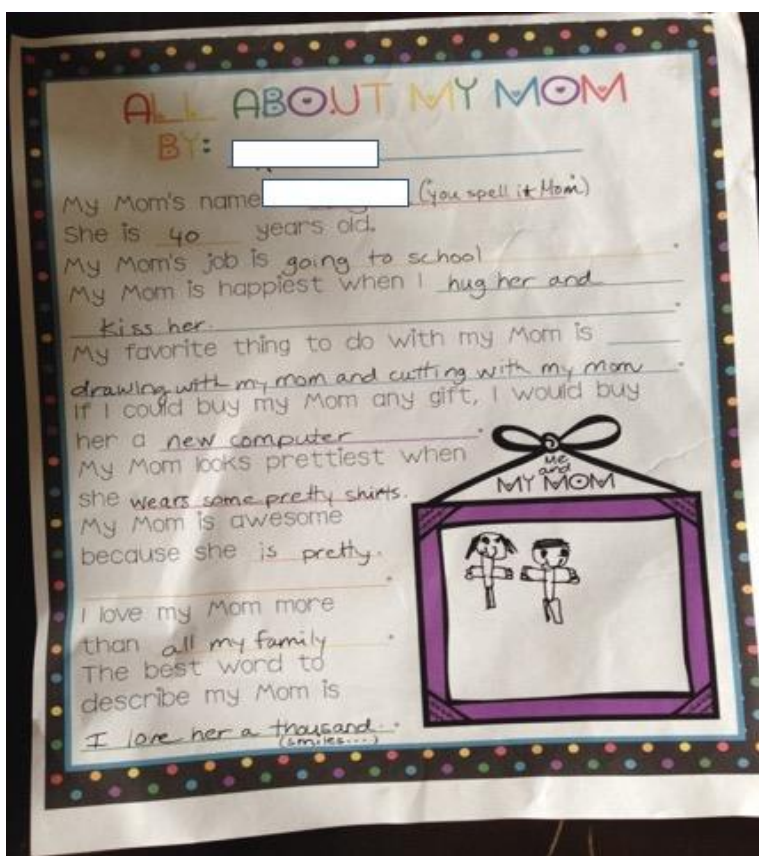 ALL ABOUT MY MOM
BY:
My Mom's name ("you spell it Mom")
She is 40 years old.
My Mom's job is going to school.
My Mom is happiest when I hug her and
kiss her.
My favorite thing to do with my Mom is
drawing with my mom and cutting with my mom.
If I could buy my Mom any gift, I would buy
her a new computer.
My Mom looks prettiest when
she wears some pretty shirts.
My Mom is awesome
because she is pretty.
I love my Mom more
than all my family.
The best word to
describe my Mom is
I love her a thousand.
(smiles...)
Me
and
MY MOM